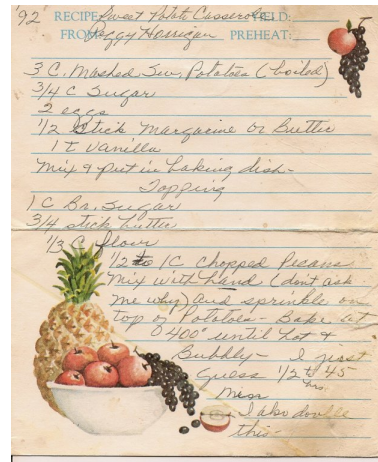 '92' RECIPE: Sweet Potato Casserole YIELD:
FROM: Peggy Harrigan PREHEAT:
3 C. Mashed Sw. Potatoes (boiled)
3/4 C Sugar
2 eggs
1/2 Stick Margarine or Butter
1 t Vanilla
Mix & put in baking dish-
Topping
1 C Br. Sugar
3/4 stick butter
1/3 C flour
1/2 to 1C Chopped Pecans
Mix with hand (don't ask
me why) and sprinkle on
top of Potatoes - Bake at
400° until hot &
Bubbly - I just
Guess 1/2 to 45
hrs.
Men
I also double
this-